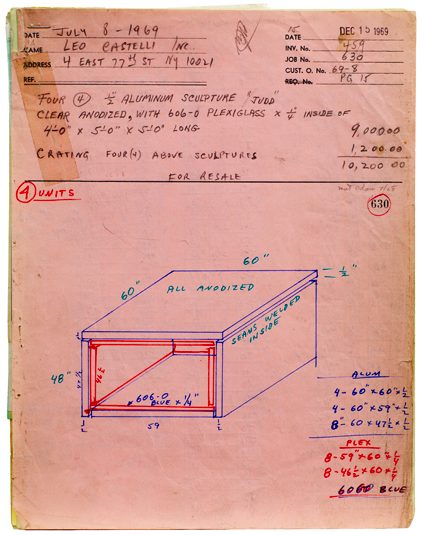 DATE JULY 8-1969
NAME LEO CASTELLI INC.
ADDRESS 4 EAST 77th ST NY 10021
REF.
DATE DEC 15 1969
INV. No. 459
JOB No. 630
CUST. O. No. 69-8
REQ. No. PG 15
FOUR (4) 1/2" ALUMINUM SCULPTURE "JUDD"
CLEAR ANODIZED, WITH 606-0 PLEXIGLASS x 1/4" INSIDE OF
4'-0" x 5'-0" x 5'-0" LONG 9,000.00
CRATING FOUR (4) ABOVE SCULPTURES 1,200.00
10,200.00
FOR RESALE
(4) UNITS
630
60"
60"
1/2"
ALL ANODIZED
SEAMS WELDED INSIDE
48"
46 1/2
606-0
BLUE x 1/4"
1/2
59
1/2
ALUM
4-60"x60"x1/2
4-60"x59"x1/2
8"-60x47 1/2x1/2
PLEX
8-59"x60"x1/4
8-46 1/2x60x1/4
606-0 BLUE